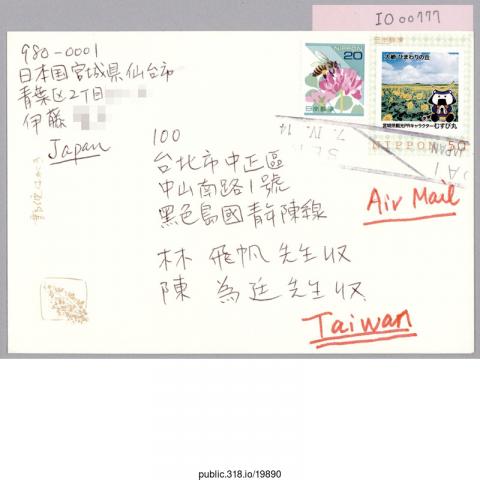 IO 00777
980-0001
日本国宮城県仙台市
青葉区2丁目
伊藤
Japan
NIPPON
20
日本郵便
日本郵便
大崎 ひまわりの丘
宮城県観光PRキャラクターむすび丸
NIPPON 50
7. IV. 14
JAPAN
100
台北市中正區
中山南路1號
黑色島國青年陣線
林 飛帆 先生收
陳 為廷 先生收
Air Mail
Taiwan
郵便はがき
public.318.io/19890